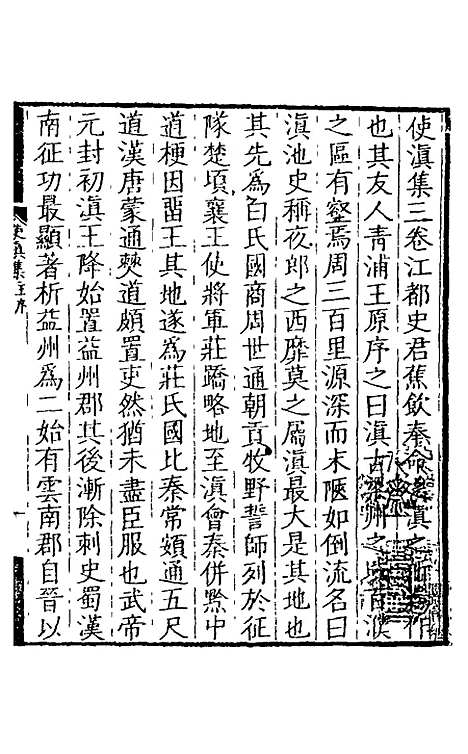 使滇集三卷江都史君蕉飲奉命
也其友人青浦王原序之曰滇古梁州之百濮
之區有壑焉周三百里源深而末陿如倒流名曰
滇池史稱夜郎之西靡莫之屬滇最大是其地也
其先爲白氏國商周世通朝貢牧野誓師列於征
隊楚頃襄王使將軍莊蹻略地至滇會秦併黔中
道梗因畱王其地遂爲莊氏國比秦常頞通五尺
道漢唐蒙通僰道頗置吏然猶未盡臣服也武帝
元封初滇王降始置益州郡其後漸除刺史蜀漢
南征功最顯著析益州爲二始有雲南郡自晉以
使滇集王序
一